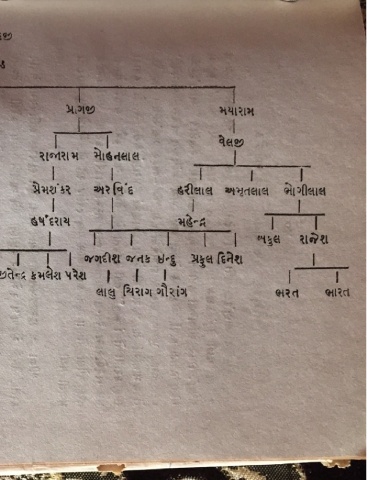 પ્રાગજી મયારામ
વેલજી
રાજારામ મોહનલાલ
પ્રેમશંકર અરવિંદ હરીલાલ અમૃતલાલ ભોગીલાલ
હર્ષદરાય મહેન્દ્ર
બકુલ રાજેશ
જગદીશ જનક ઇન્દુ પ્રફુલ દિનેશ
કમલેશ પરેશ
લાલુ ચિરાગ ગૌરાંગ ભરત ભારત